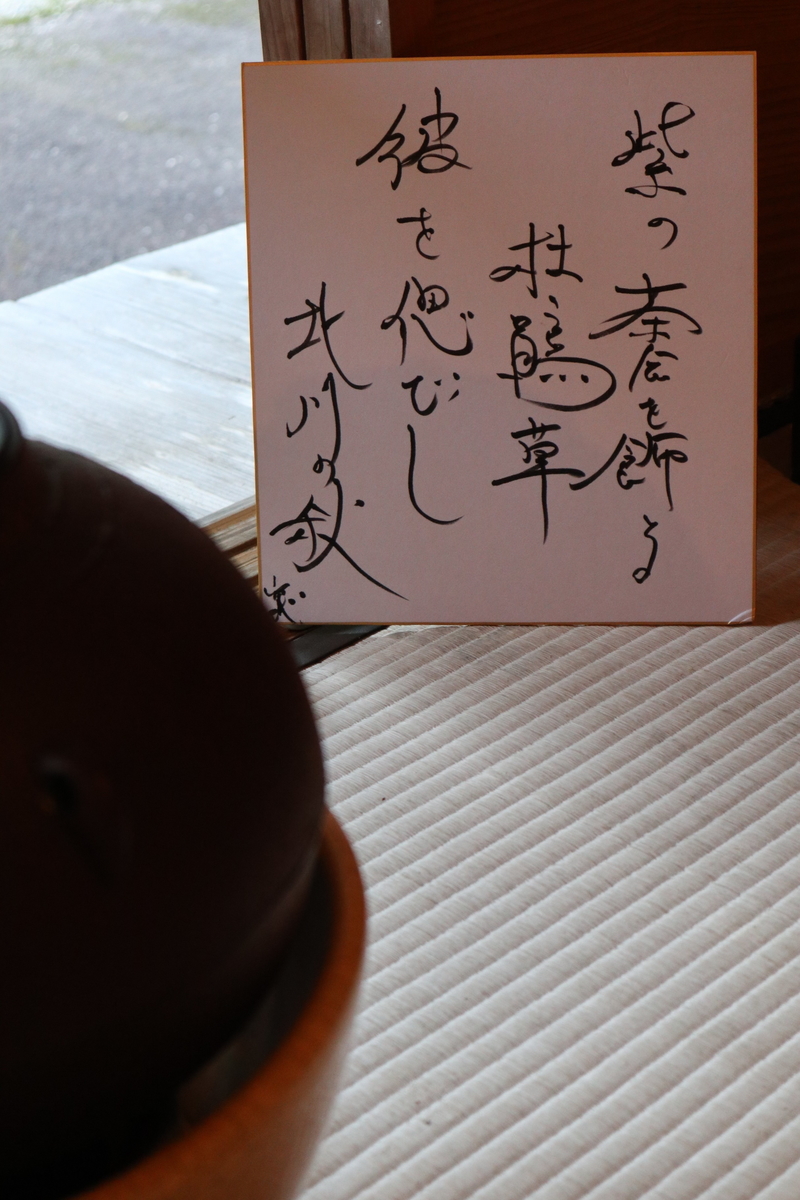 紫の茶会を飾る
杜鵑草
彼を偲びし
北川の秋